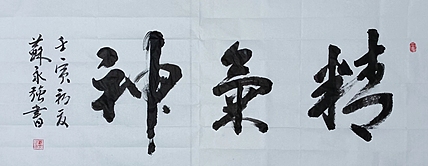 精氣神
壬寅初夏
蘇永强書